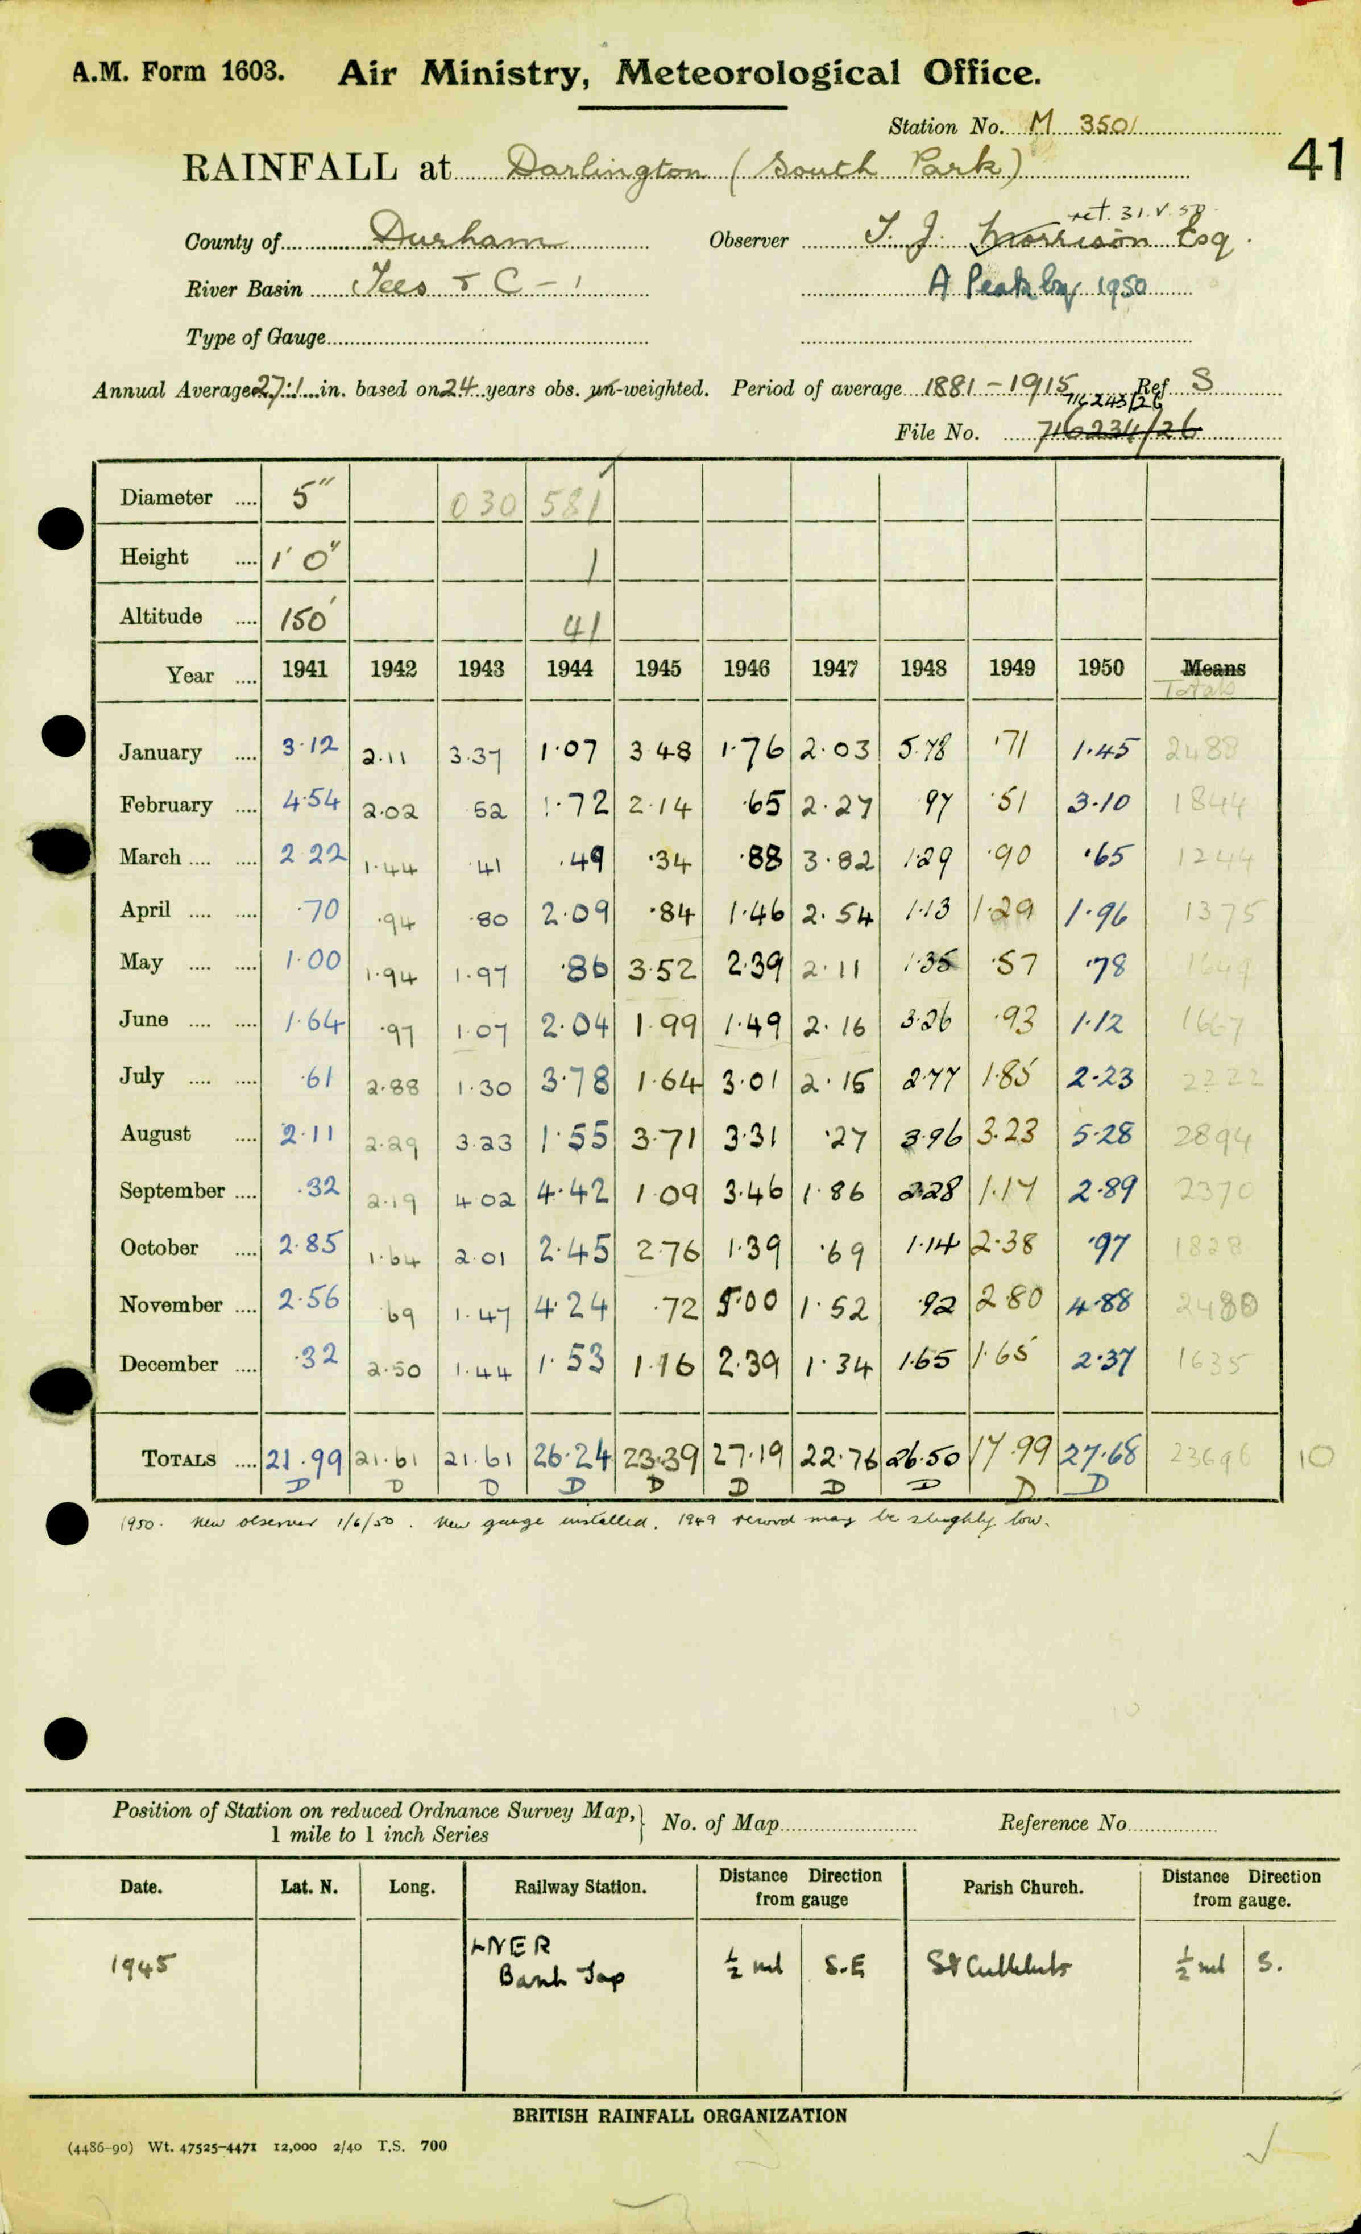 A.M. Form 1603. Air Ministry, Meteorological Office.
Station No. M 3501
41
RAINFALL at Darlington (South Park)
ret. 31.V.50
County of Durham Observer T. J. Morrison Esq.
River Basin Tees & C - 1 A 1950
Type of Gauge
Annual Average 27.1 in. based on 24 years obs. un-weighted. Period of average 1881-1915 Ref S
716243/26
File No. 716234/26
Diameter .... 5" 030 581
Height .... 1' 0" 1
Altitude .... 150' 41
Year .... 1941 1942 1943 1944 1945 1946 1947 1948 1949 1950 Means
Totals
January .... 3.12 2.11 3.37 1.07 3.48 1.76 2.03 5.78 .71 1.45 2488
February .... 4.54 2.02 52 1.72 2.14 .65 2.27 .97 .51 3.10 1844
March .... .... 2.22 1.44 .41 .49 .34 .88 3.82 1.29 .90 .65 1244
April .... .... .70 .94 .80 2.09 .84 1.46 2.54 1.13 1.29 1.96 1375
May .... .... 1.00 1.94 1.97 .86 3.52 2.39 2.11 1.35 .57 .78 1649
June .... .... 1.64 .97 1.07 2.04 1.99 1.49 2.16 3.26 .93 1.12 1667
July .... .... .61 2.88 1.30 3.78 1.64 3.01 2.15 2.77 1.85 2.23 2222
August .... 2.11 2.29 3.23 1.55 3.71 3.31 .27 3.96 3.23 5.28 2894
September .... .32 2.19 4.02 4.42 1.09 3.46 1.86 2.28 1.17 2.89 2370
October .... 2.85 1.64 2.01 2.45 2.76 1.39 .69 1.14 2.38 .97 1828
November .... 2.56 .69 1.47 4.24 .72 5.00 1.52 .92 2.80 4.88 2480
December .... .32 2.50 1.44 1.53 1.16 2.39 1.34 1.65 1.65 2.37 1635
TOTALS .... 21.99 21.61 21.61 26.24 23.39 27.19 22.76 26.50 17.99 27.68 23696 10
D D D D D D D D D D
1950. New observer 1/6/50. New gauge installed. 1949 record may be slightly low.
Position of Station on reduced Ordnance Survey Map, No. of Map Reference No
1 mile to 1 inch Series
Date. Lat. N. Long. Railway Station. Distance Direction from gauge Parish Church. Distance Direction from gauge.
1945 LNER Bank Top ½ ml S.E St Cuthberts ½ ml S.
BRITISH RAINFALL ORGANIZATION
(4486-90) Wt. 47525-4471 12,000 2/40 T.S. 700